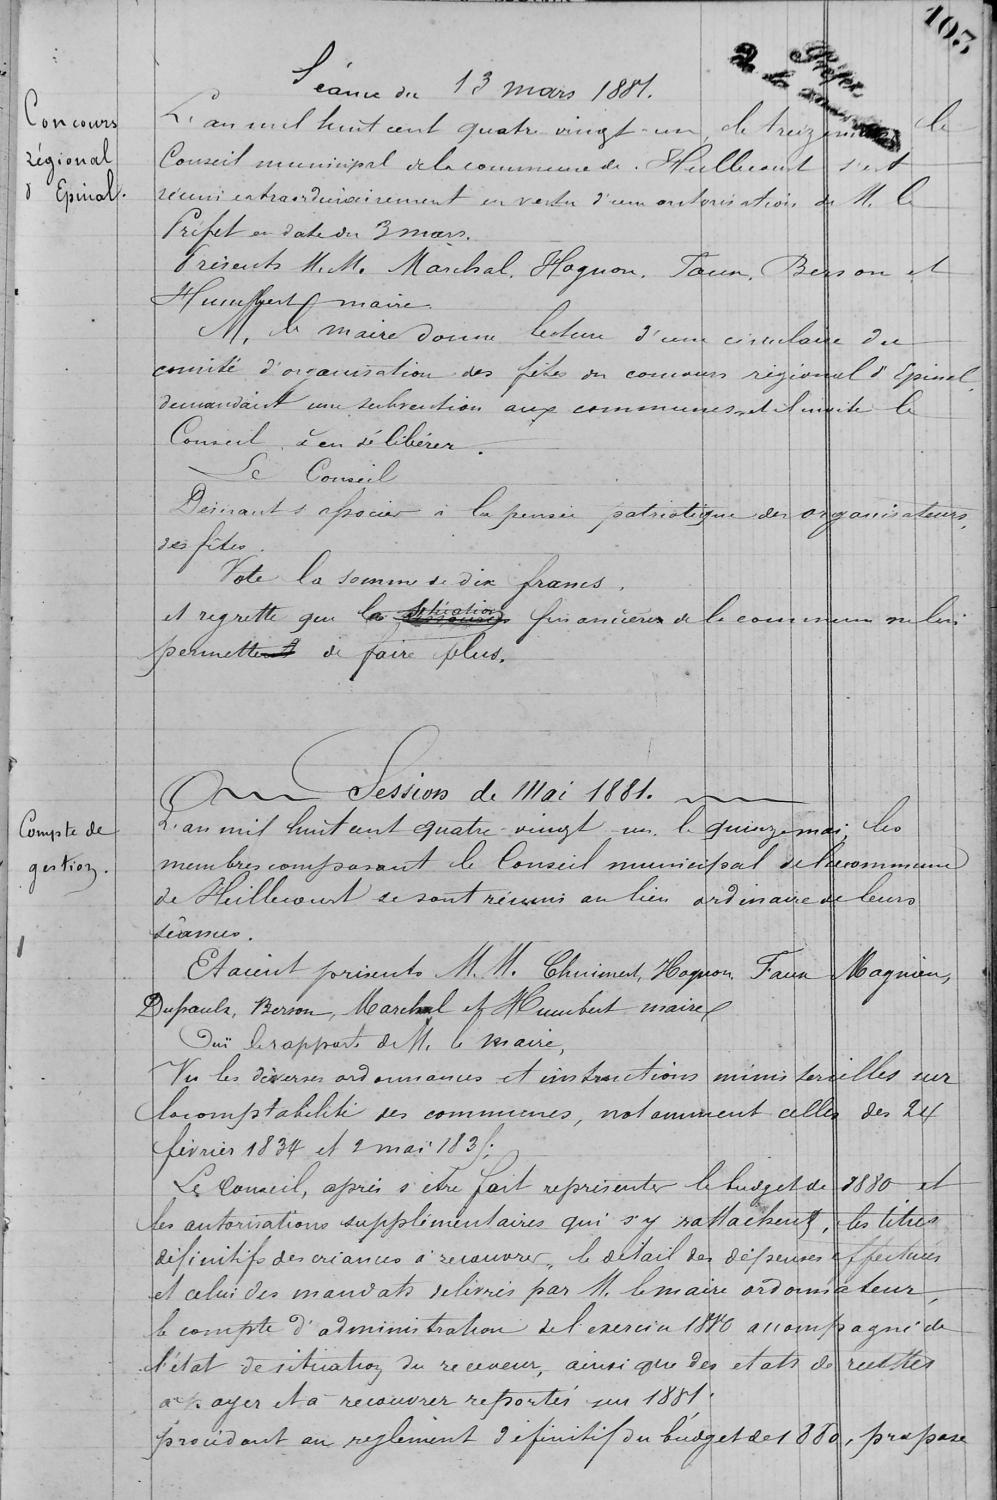 103
Préfet
de la
Séance du 13 mars 1881.
Concours
régional
d'Epinal.
L'an mil huit cent quatre vingt-un, le treize mars le
Conseil municipal de la commune de Heillecourt s'est
réuni extraordinairement en vertu d'une autorisation de M. le
Préfet en date du 3 mars.
Présents M.M. Marchal, Hognon, Faux, Berson et
Humbert maire.
M. le maire donne lecture d'une circulaire du
comité d'organisation des fêtes du concours régional d'Epinal,
demandant une subvention aux communes, et il invite le
Conseil à en délibérer.
Le Conseil
Désirant s'associer à la pensée patriotique des organisateurs
des fêtes.
Vote la somme de dix francs.
et regrette que la situation financière de la commune ne lui
permette de faire plus.
Session de Mai 1881.
Compte de
gestion.
L'an mil huit cent quatre-vingt un le quinze mai, les
membres composant le Conseil municipal de la commune
de Heillecourt se sont réunis au lieu ordinaire de leurs
séances.
Etaient présents M.M. Hognon, Faux Magnien,
Berson, Marchal et Humbert maire
Ouï le rapport de M. le maire,
Vu les diverses ordonnances et instructions ministérielles sur
la comptabilité des communes, notamment celles des 24
février 1834 et 2 mai
Le Conseil, après s'être fait représenter le budget de 1880 et
les autorisations supplémentaires qui s'y rattachent, les titres
définitifs des créances à recouvrer, le détail des dépenses effectuées
et celui des mandats délivrés par M. le maire ordonnateur,
le compte d'administration de l'exercice 1880 accompagné de
l'état de situation du receveur, ainsi que des etats de restes
à payer et à recouvrer reportés sur 1881.
procédant au règlement définitif du budget de 1880, propose